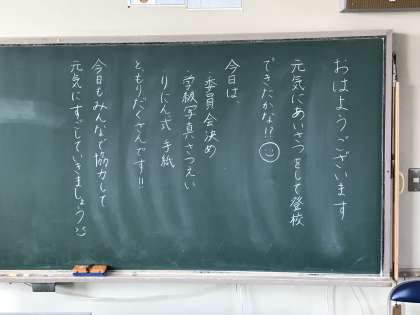 おはようございます
元気にあいさつをして登校
できたかな!?
今日は、
委員会決め
学級写真さつえい
りにん式 手紙
ともりだくさんです!!
今日もみんなで協力して
元気にすごしていきましょう